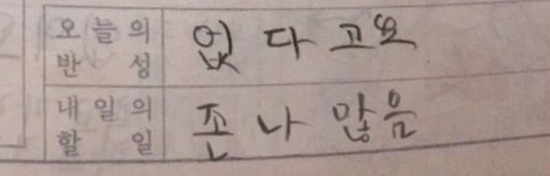 오늘의
반 성
없다고요
내일의
할 일
존나 많음